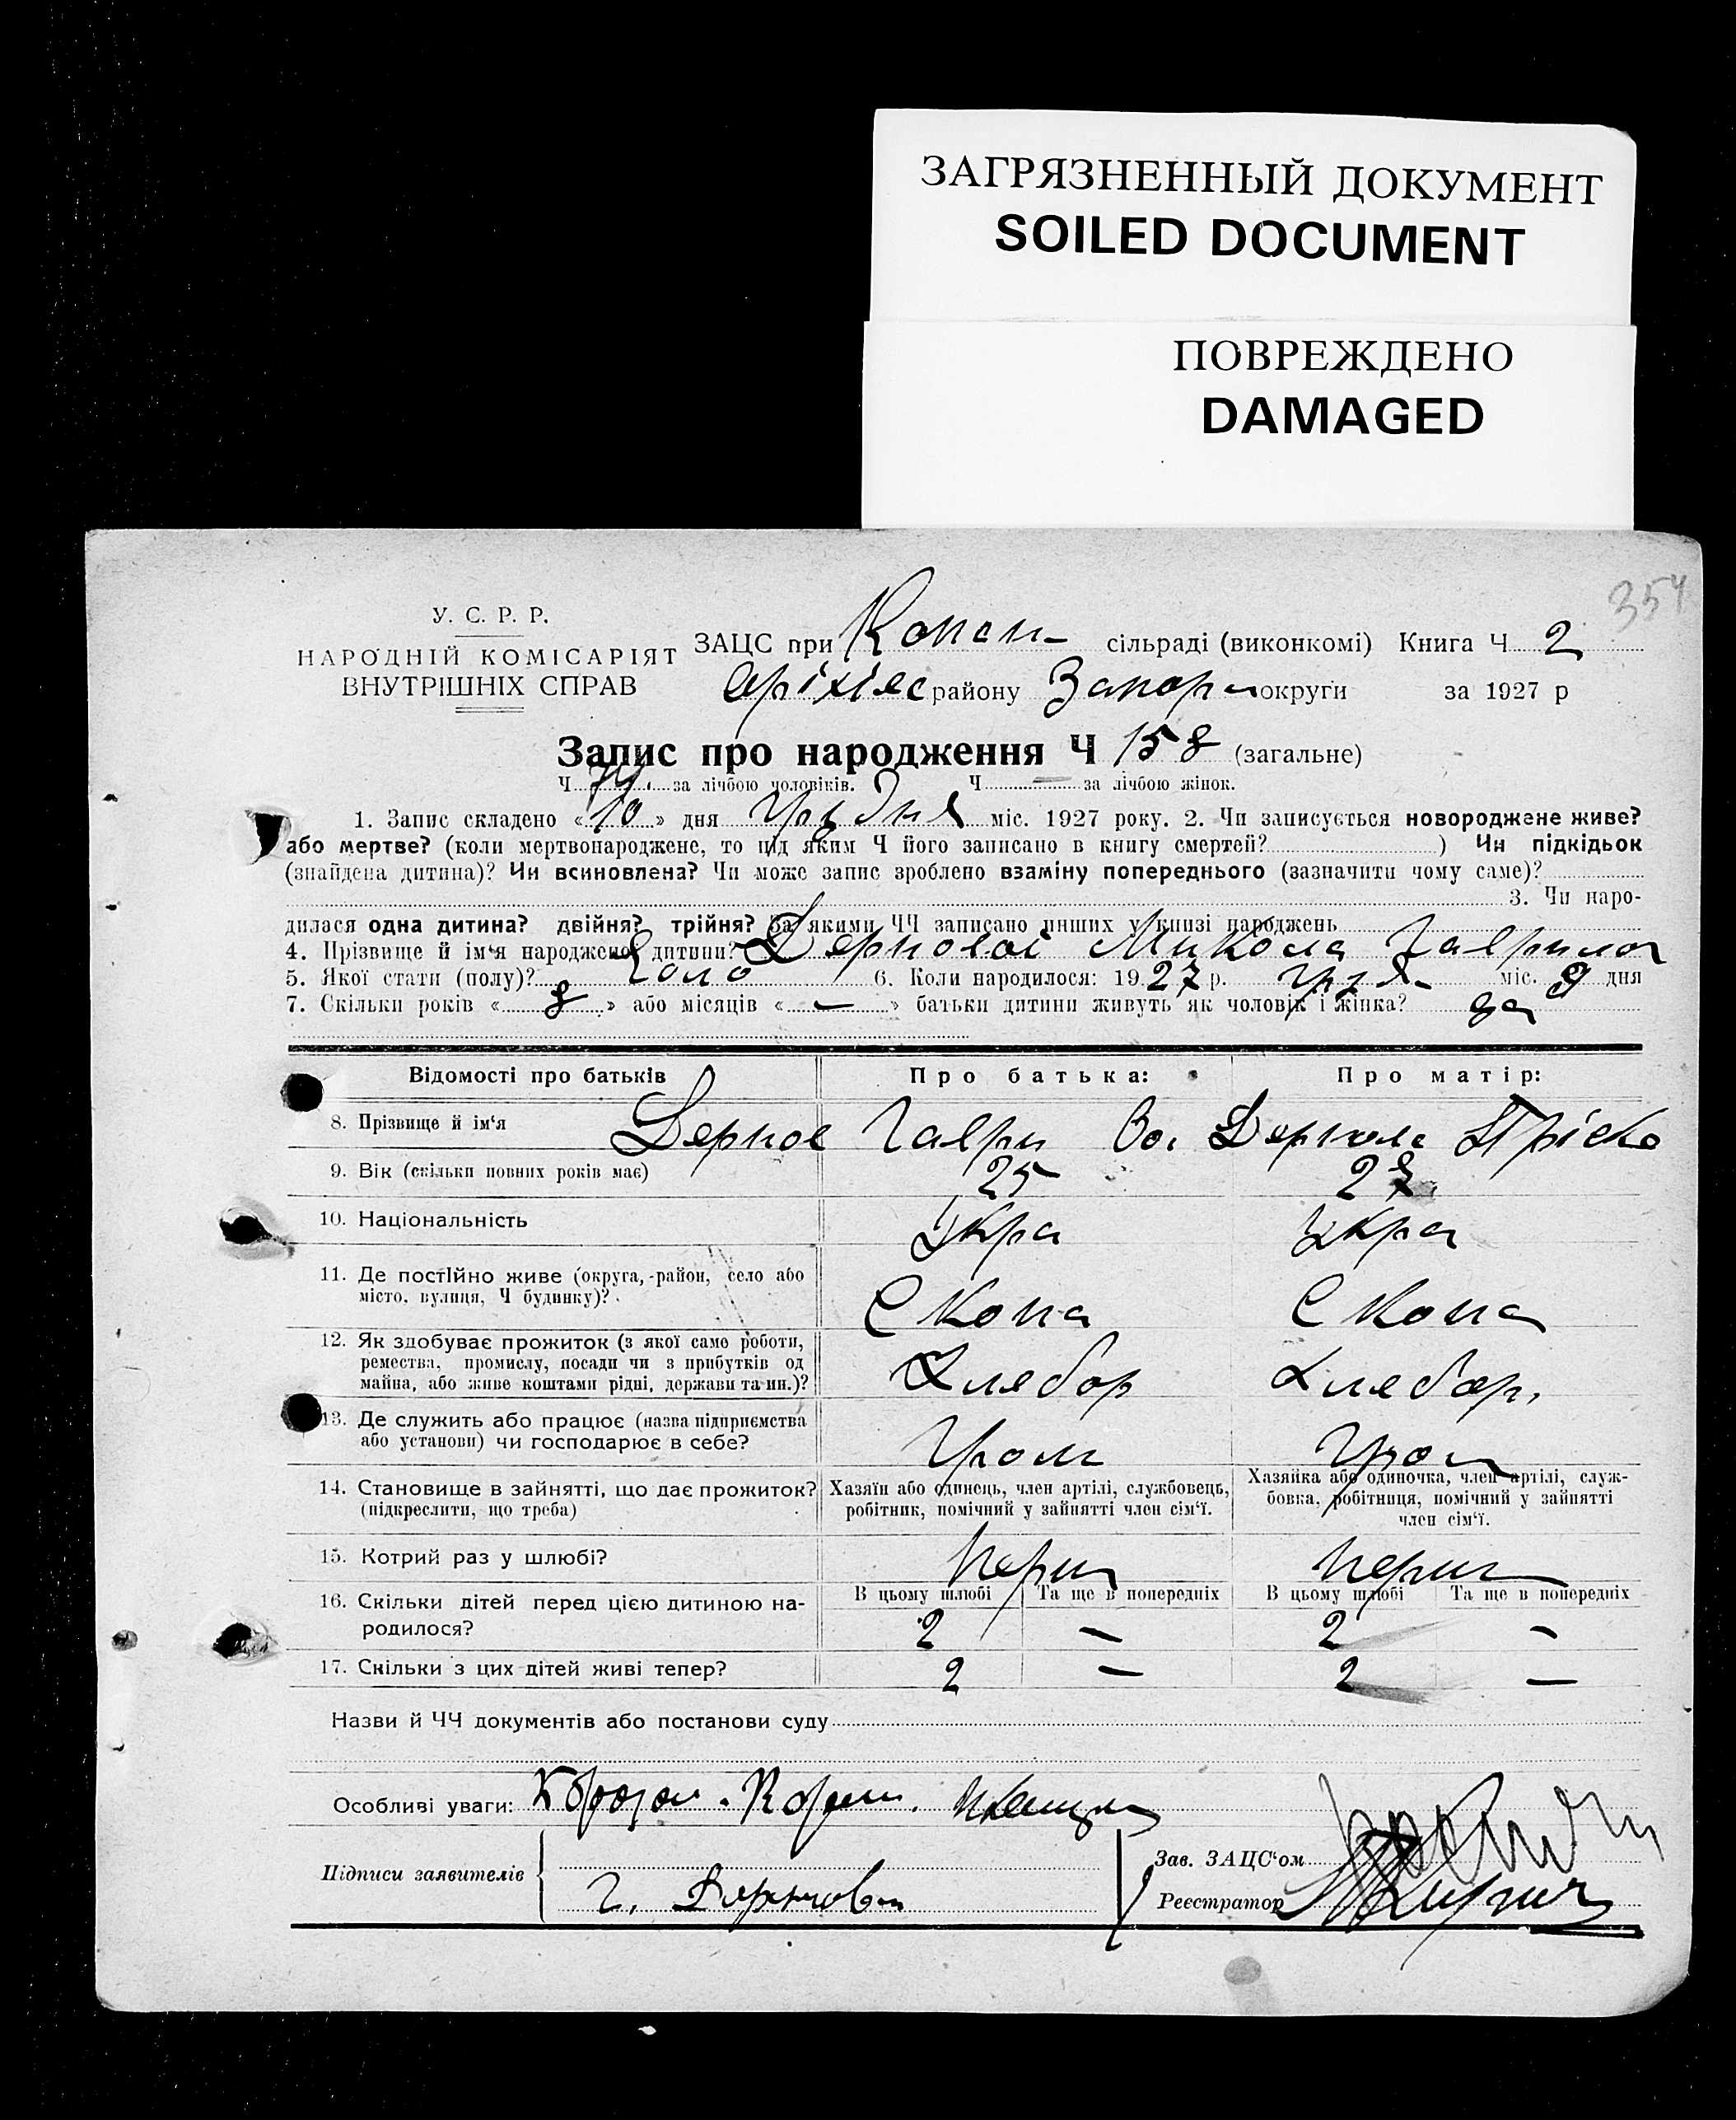 ЗАГРЯЗНЕННЫЙ ДОКУМЕНТ
SOILED DOCUMENT
ПОВРЕЖДЕНО
DAMAGED
354
У. С. Р. Р.
НАРОДНІЙ КОМІСАРІЯТ
ВНУТРІШНІХ СПРАВ
ЗАЦС при Копан- сільраді (виконкомі) Книга Ч 2
Оріхівс району Запор округи за 1927 р
Запис про народження Ч 158 (загальне)
Ч 74 за лічбою чоловіків. Ч — за лічбою жінок.
1. Запис складено «10» дня Грудня міс. 1927 року. 2. Чи записується новороджене живе?
або мертве? (коли мертвонароджене, то під яким Ч його записано в книгу смертей? ) Чи підкідьок
(знайдена дитина)? Чи всиновлена? Чи може запис зроблено взаміну попереднього (зазначити чому саме)?
3. Чи наро-
дилася одна дитина? двійня? трійня? За якими ЧЧ записано инших у книзі народжень
4. Прізвище й ім‘я народженої дитини? Микола Гаврилов
5. Якої стати (полу)? Чоло 6. Коли народилося: 1927 р. Груд- міс. 9 дня
7. Скільки років «8» або місяців «—» батьки дитини живуть як чоловік і жінка? да
Відомості про батьків Про батька: Про матір:
8. Прізвище й ім‘я Гаври Пріска
9. Вік (скільки повних років має) 25
10. Національність Укра Укра
11. Де постІйно живе (округа, район, село або
місто, вулиця, Ч будинку)? С Копа С Копа
12. Як здобуває прожиток (з якої саме роботи,
ремества, промислу, посади чи з прибутків од
майна, або живе коштами рідні, держави та ин.)? Хлебор Хлебор.
13. Де служить або працює (назва підприємства
або установи) чи господарює в себе?
14. Становище в зайнятті, що дає прожиток? Хазяїн або одинець, член артілі, службовець, Хазяйка або одиночка, член артілі, служ-
(підкреслити, що треба) робітник, помічний у зайнятті член сім‘ї. бовка, робітниця, помічний у зайнятті
член сім‘ї.
15. Котрий раз у шлюбі? перш перш
В цьому шлюбі Та ще в попередніх В цьому шлюбі Та ще в попередніх
16. Скільки дітей перед цією дитиною на-
родилося? 2 — 2 —
17. Скільки з цих дітей живі тепер? 2 — 2 —
Назви й ЧЧ документів або постанови суду
Особливі уваги:
Підписи заявителів
Зав. ЗАЦС‘ом
Г.
Реєстратор